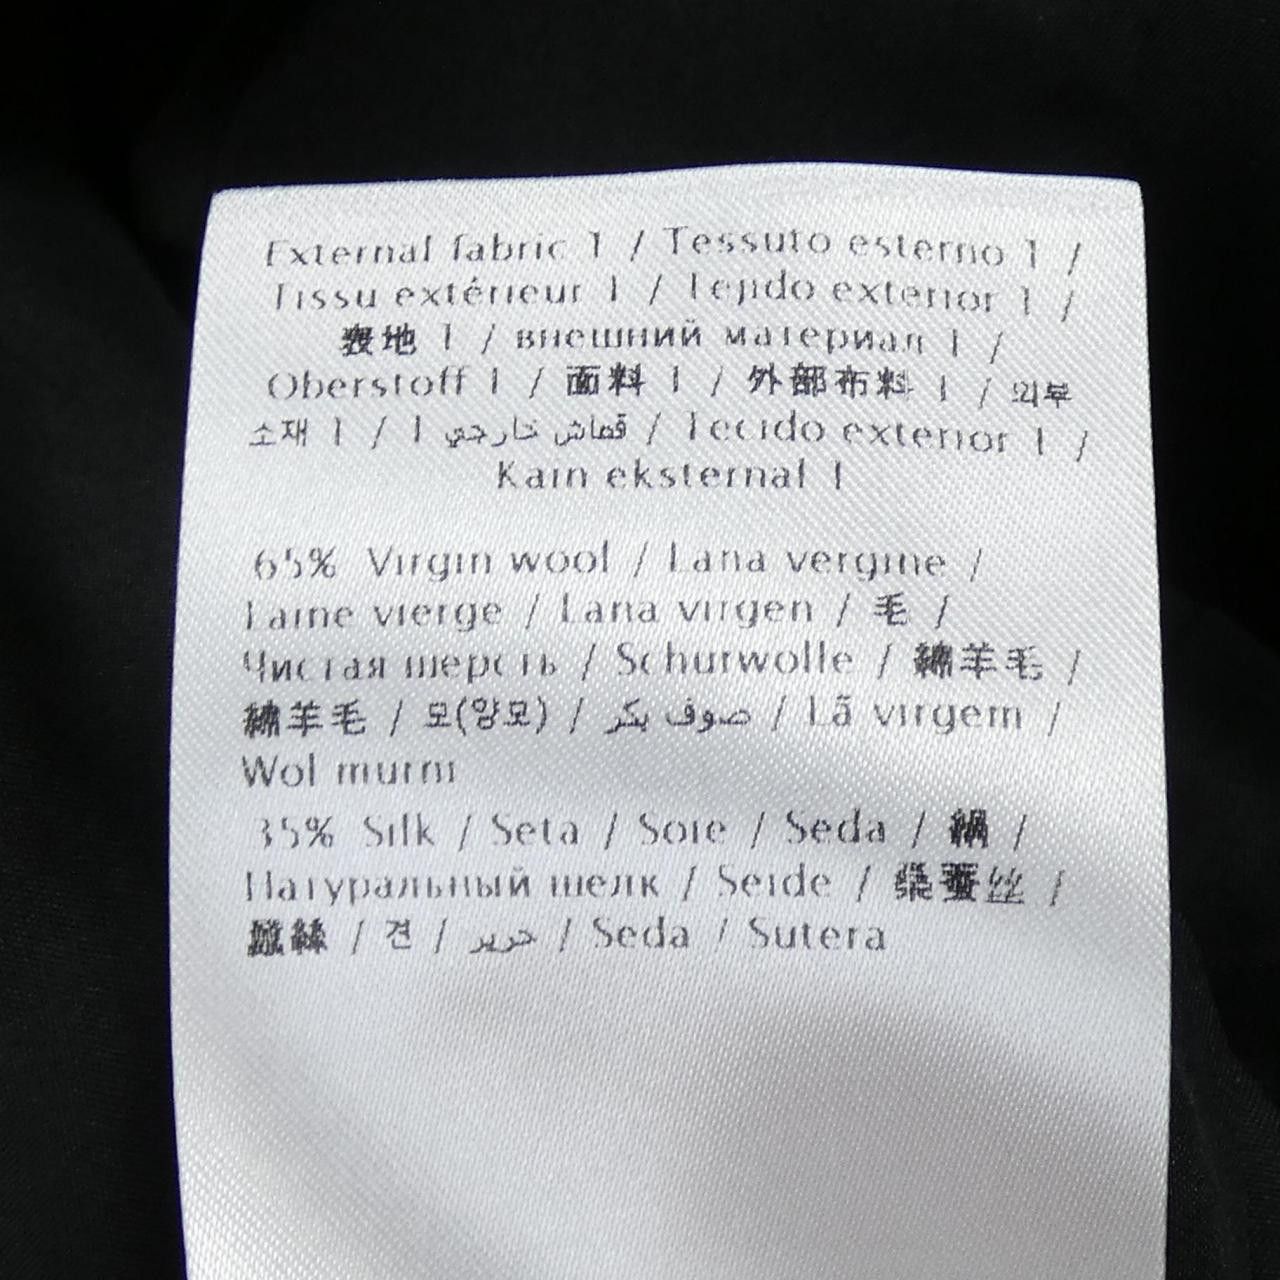 External fabric 1 / Tessuto esterno 1 /
Tissu extérieur 1 / Tejido exterior 1 /
表地 1 / внешний материал 1 /
Oberstoff 1 / 面料 1 / 外部布料 1 / 외부
소재 1 / 1 قماش خارجي / Tecido exterior 1 /
Kain eksternal 1
65% Virgin wool / Lana vergine /
Laine vierge / Lana virgen / 毛 /
Чистая шерсть / Schurwolle / 綿羊毛 /
綿羊毛 / 모(양모) / صوف بكر / Lã virgem /
Wol murni
35% Silk / Seta / Soie / Seda / 絹 /
Натуральный шелк / Seide / 桑蚕丝 /
蠶絲 / 견 / حرير / Seda / Sutera